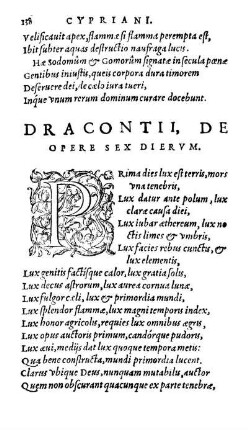 158 CYPRIANI.
Velificauit apex, flammæ si flamma perempta est,
Ibit subter aquas destructio naufraga lucis.
Hæ Sodomũ & Gomorũm signatæ in secula pœnæ
Gentibus iniustis, queis corpora dura timorem
Deseruere dei, de cælo iura tueri,
Inque vnum rerum dominum curare docebunt.
DRACONTII, DE
OPERE SEX DIERVM.
PRima dies lux est terris, mors
vna tenebris,
Lux datur ante polum, lux
claræ causa diei,
Lux iubar æthereum, lux no
ctis limes & vmbris,
Lux facies rebus cunctis, &
lux elementis,
Lux genitis factisque calor, lux gratia solis,
Lux decus astrorum, lux aurea cornua lunæ,
Lux fulgor cæli, lux & primordia mundi,
Lux splendor flammæ, lux magni temporis index,
Lux honor agricolis, requies lux omnibus ægris,
Lux opus auctoris primum, candórque pudoris,
Lux æui, medijs dat lux quoque tempora metis:
Qua bene constructa, mundi primordia lucent.
Clarus vbique Deus, nunquam mutabilis, auctor
Quem non obscurant quacunque ex parte tenebræ,